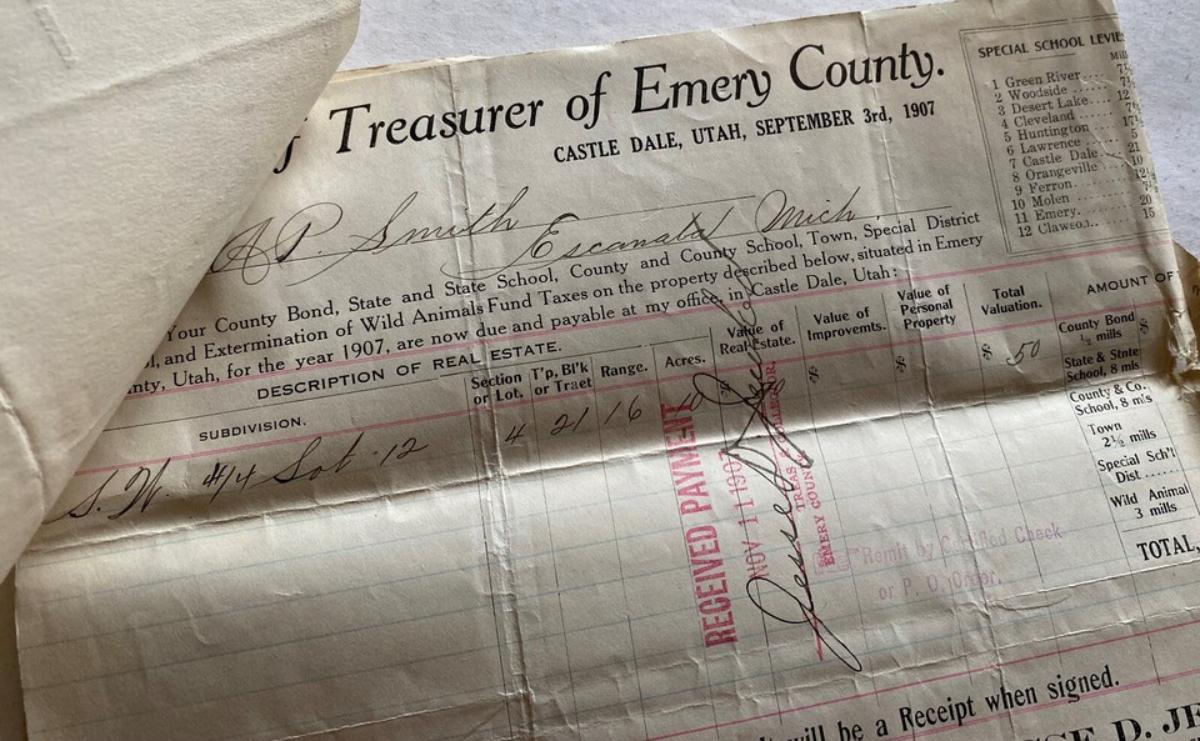 f Treasurer of Emery County.
CASTLE DALE, UTAH, SEPTEMBER 3rd, 1907
A P. Smith
Escanaba Mich.
Your County Bond, State and State School, County and County School, Town, Special District
l, and Extermination of Wild Animals Fund Taxes on the property described below, situated in Emery
nty, Utah, for the year 1907, are now due and payable at my office, in Castle Dale, Utah:
SPECIAL SCHOOL LEVIE
Mil
1 Green River
2 Woodside
3 Desert Lake 12
4 Cleveland
5 Huntington
6 Lawrence 5
7 Castle Dale 21
8 Orangeville 10
9 Ferron
10 Molen
11 Emery 20
12 Clawson 15
DESCRIPTION OF REAL ESTATE.
SUBDIVISION.
Section or Lot.
T'p, Bl'k or Traet
Range.
Acres.
Value of Real Estate.
Value of Improvemts.
Value of Personal Property
Total Valuation.
AMOUNT OF
$ $ $ $ $
S. W. 1/4 Lot 12 4 21 16 10 50
County Bond ½ mills
State & State School, 8 mls
County & Co. School, 8 mls
Town 2½ mills
Special Sch'l Dist
Wild Animal 3 mills
TOTAL,
RECEIVED PAYMENT
NOV 1 1907
Jesse D.
TREAS & COLLECTOR.
EMERY COUNTY
Remit by Certified Check
or P. O. Order.
will be a Receipt when signed.
SE D. JE